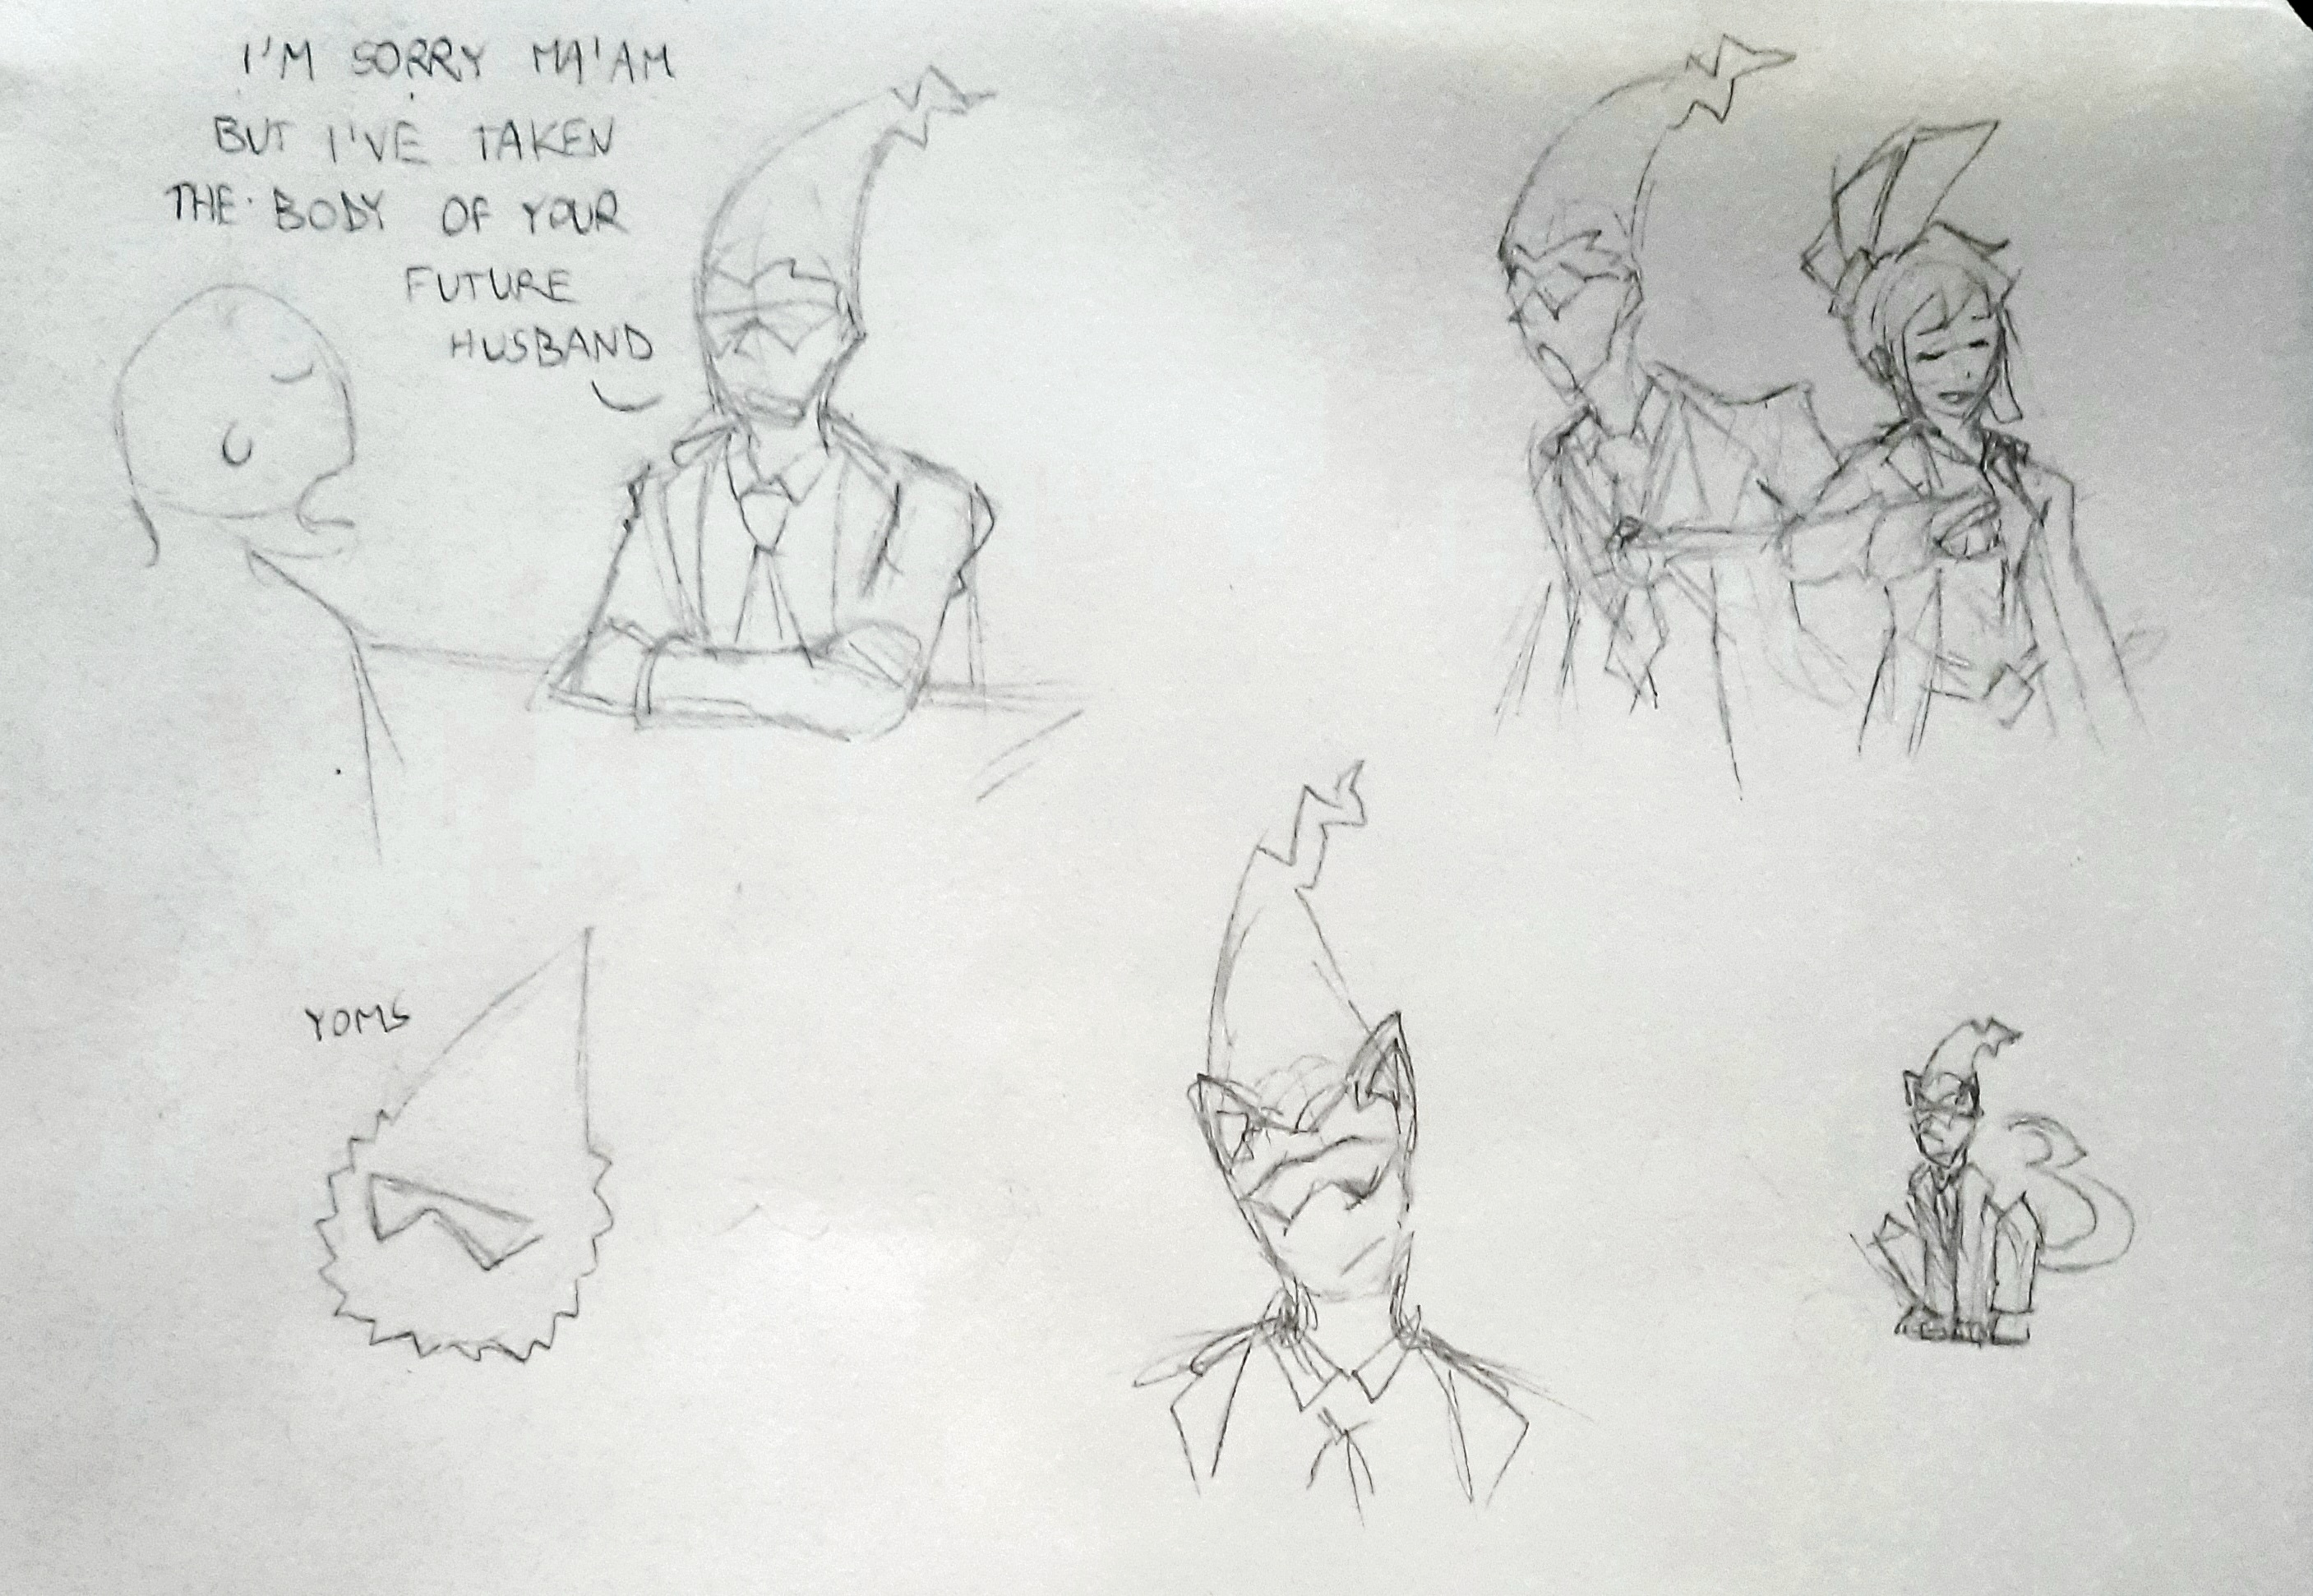 I'M SORRY MA'AM
BUT I'VE TAKEN
THE BODY OF YOUR
FUTURE
HUSBAND
YOMS